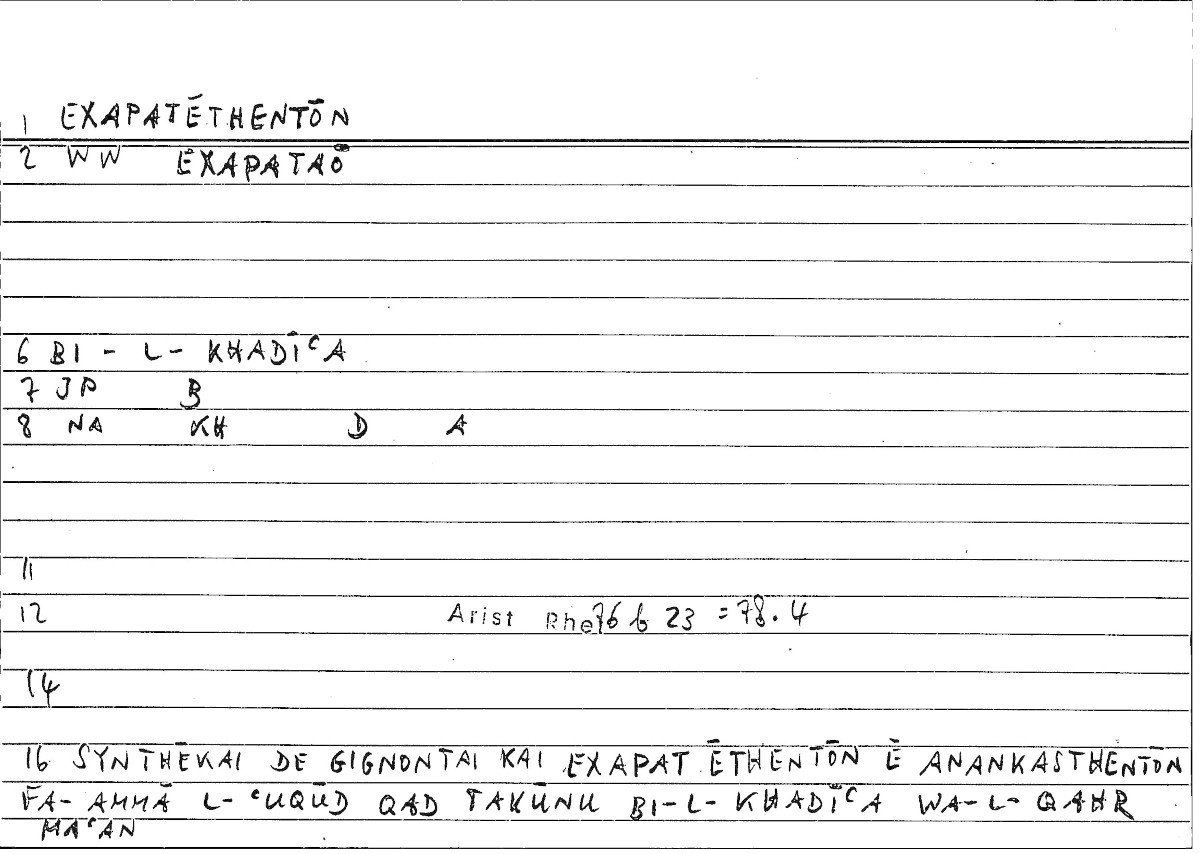 1 EXAPATĒTHENTŌN
2 WW EXAPATAŌ
6 BI - L- KHADĪᶜA
7 JP B
8 NA KH D A
11
12 Arist Rhe 76 b 23 = 78.4
14
16 SYNTHĒKAI DE GIGNONTAI KAI EXAPATĒTHENTŌN Ē ANANKASTHENTŌN
FA- AMMĀ L- ᶜUQŪD QAD TAKŪNU BI-L- KHADĪᶜA WA-L- QAHR
MAᶜAN